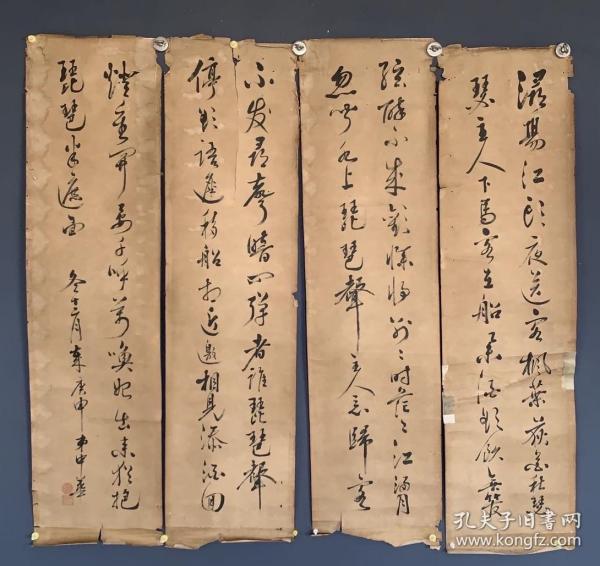 潯陽江頭夜送客楓葉荻花秋瑟
瑟主人下馬客在船舉酒欲飲無管
絃醉不成歡慘將別〻時茫〻江浸月
忽聞水上琵琶聲主人忘歸客
不发尋聲暗問彈者誰琵琶聲
停欲語遲移船相近邀相見添酒回
燈重開宴千呼萬喚始出來猶抱
琵琶半遮面
冬十二月 庚申
孔夫子旧书网
www.kongfz.com